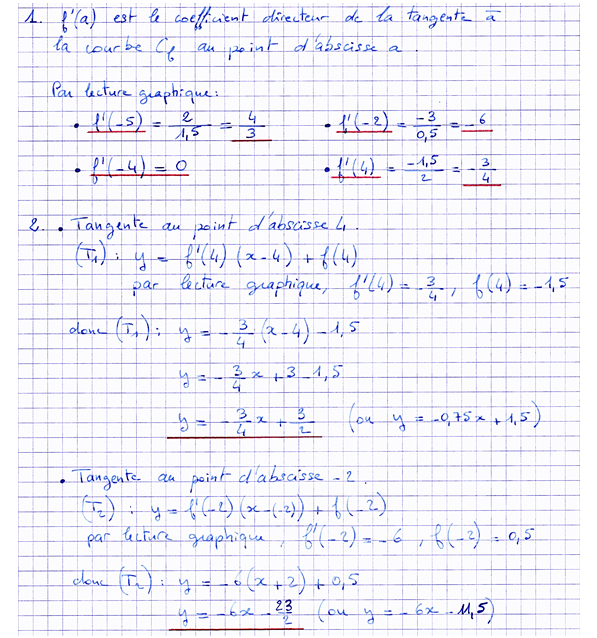 1. f'(a) est le coefficient directeur de la tangente à
la courbe Cf au point d'abscisse a.
Par lecture graphique :
• f'(-5) = 2/1,5 = 4/3 • f'(-2) = -3/0,5 = -6
• f'(-4) = 0 • f'(4) = -1,5/2 = -3/4
2. • Tangente au point d'abscisse 4.
(T₁) : y = f'(4) (x-4) + f(4)
par lecture graphique, f'(4) = -3/4, f(4) = -1,5
donc (T₁) : y = -3/4 (x-4) - 1,5
y = -3/4 x + 3 - 1,5
y = -3/4 x + 3/2 (ou y = -0,75x + 1,5)
• Tangente au point d'abscisse -2.
(T₂) : y = f'(-2) (x-(-2)) + f(-2)
par lecture graphique, f'(-2) = -6, f(-2) = 0,5
donc (T₂) : y = -6(x+2) + 0,5
y = -6x - 23/2 (ou y = -6x - 11,5)